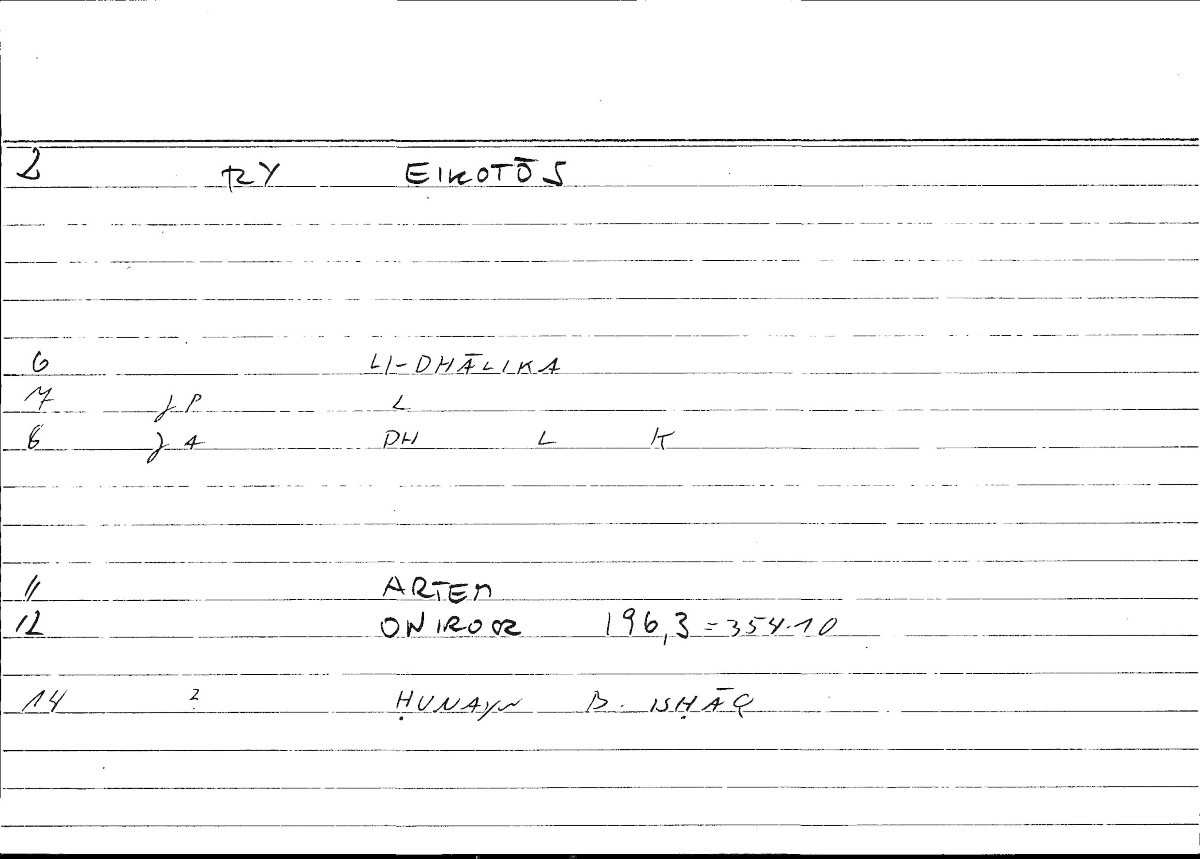 2 RY EIKOTŌS
6 LI-DHĀLIKA
7 JP L
8 JA DH L K
11 ARTEM
12 ONIROCR 196,3=354.10
14 2 ḤUNAYN B. ISḤĀQ